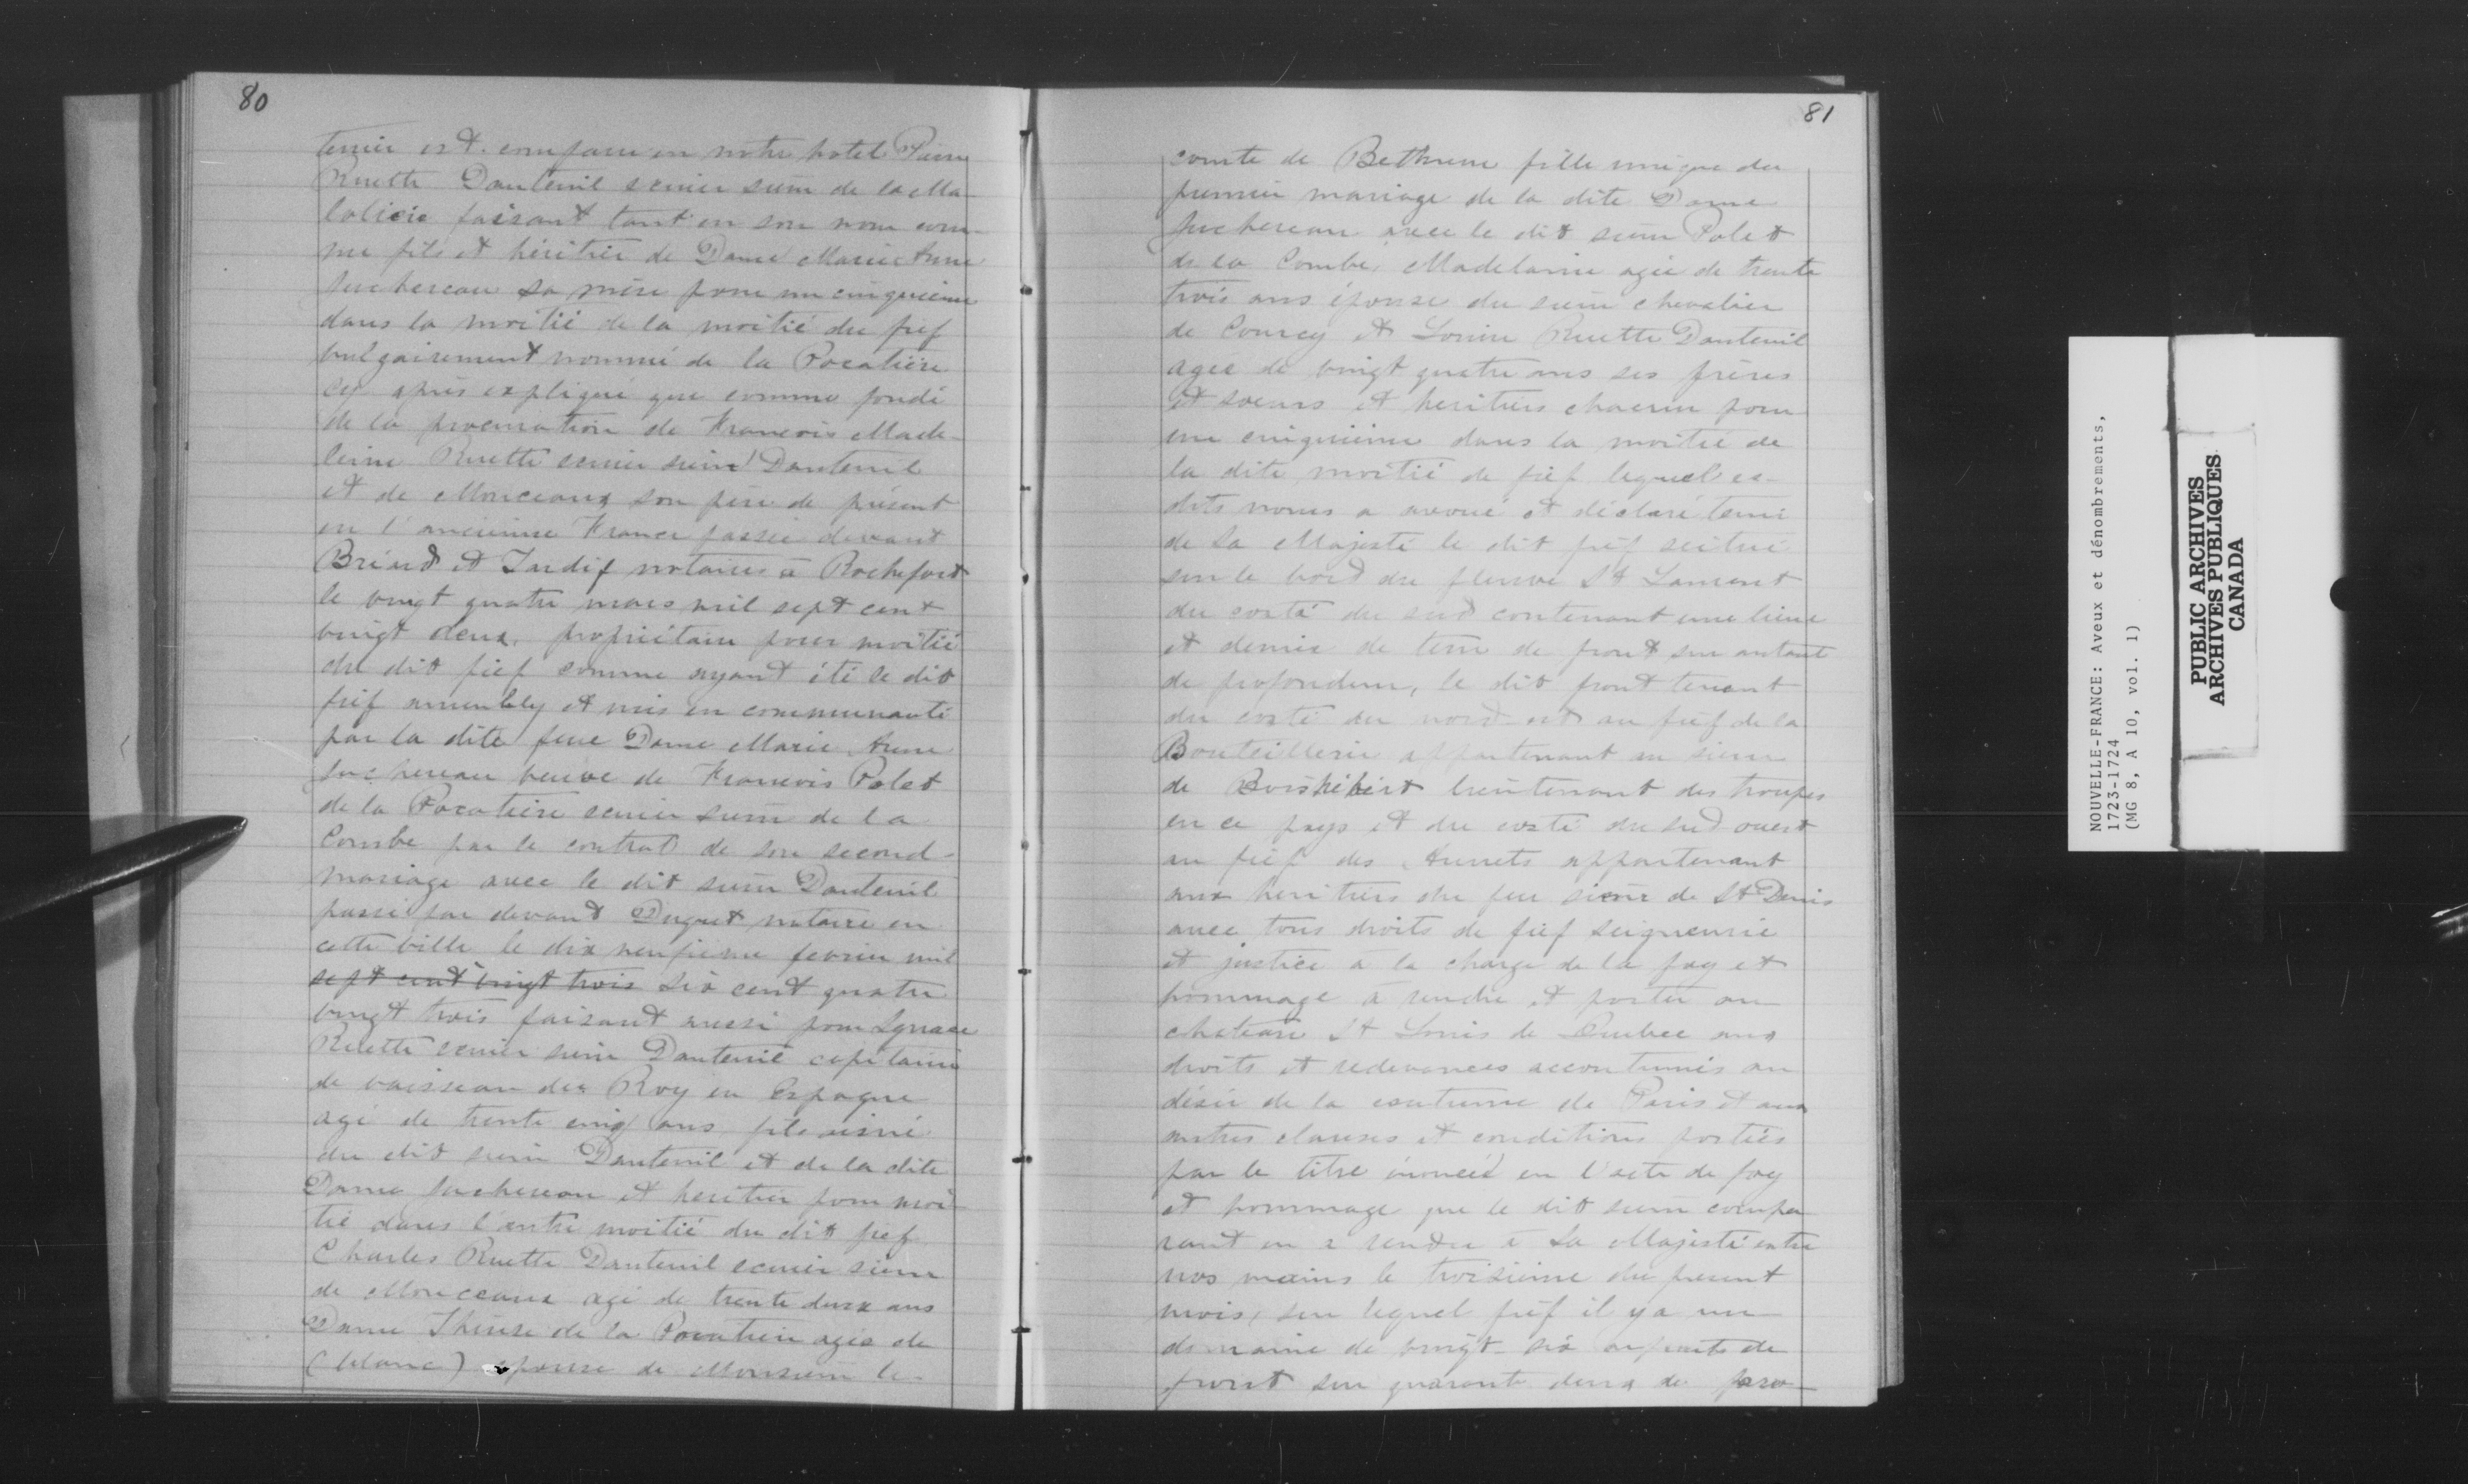 80
terrier est comparu en notre hotel Pierre
Ruette Dauteuil ecuier sieur de la Ma-
lolicie faisant tant en son nom com-
me fils et héritier de Dame Marie Anne
Juchereau sa mère pour un cinquieme
dans la moitié de la moitié du fief
vulgairement nommé de la Pocatière
cy après expliqué que comme fondé
de la procuration de Francois Made-
leine Ruette ecuier sieur Dauteuil
et de Monceaux son père de présent
en l'ancienne France passée devant
Briand et Tardif notaires à Rochefort
le vingt quatre mars mil sept cent
vingt deux, propriétaire pour moitié
du dit fief comme ayant été le dit
fief ameubly et mis en communauté
par la dite feue Dame Marie Anne
Juchereau veuve de Francois Polet
de la Pocatière ecuier sieur de la
Combe par le contrat de son second
mariage avec le dit sieur Dauteuil
passé par devant Duquet notaire en
cette ville le dix neufieme fevrier mil
sept cent vingt trois six cent quatre
vingt trois faisant aussi pour Ignace
Ruette ecuier sieur Dauteuil capitaine
de vaisseau du Roy en Espagne
agé de trente cinq ans fils aisné
du dit sieur Dauteuil et de la dite
Dame Juchereau et heritier pour moi-
tié dans l'autre moitié du dit fief
Charles Ruette Dauteuil ecuier sieur
de Monceaux agé de trente deux ans
Dame Therese de la Pocatiere agée de
(blanc) epouse de Monsieur le
81
comte de Bethune fille unique du
premier mariage de la dite Dame
Juchereau avec le dit sieur Polet
de la Combe, Madelaine agée de trente
trois ans épouse du sieur chevalier
de Courcy et Louise Ruette Dauteuil
agée de vingt quatre ans ses frères
et soeurs et heritiers chacun pour
un cinquieme dans la moitié de
la dite moitié de fief lequel es-
dits noms a avoué et déclaré tenir
de Sa Majesté le dit fief scitué
sur le bord du fleuve St Laurent
du costé du sud contenant une lieue
et demie de terre de front sur autant
de profondeur, le dit front tenant
du costé du nord est au fief de la
Bouteillerie appartenant au sieur
de Boishébert lieutenant des troupes
en ce pays et du costé du sud ouest
au fief des Aunets appartenant
aux heritiers du feu sieur de St Denis
avec tous droits de fief seigneurie
et justice a la charge de la foy et
hommage à rendre et porter au
chateau St Louis de Quebec aux
droits et redevances accoutumés au
désir de la coutume de Paris et aux
autres clauses et conditions portées
par le titre énoncé en l'acte de foy
et hommage que le dit sieur compa
rant en a rendu a Sa Majesté entre
nos mains le troisieme du present
mois, sur lequel fief il y a un
domaine de vingt-six arpents de
front sur quarante deux de pro-
NOUVELLE-FRANCE: Aveux et dénombrements,
1723-1724
(MG 8, A 10, vol. 1)
PUBLIC ARCHIVES
ARCHIVES PUBLIQUES
CANADA